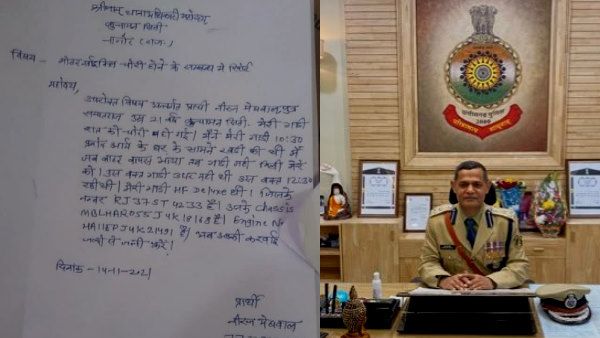 श्रीमान् थानाधिकारी महोदय,
कुचामन सिटी
नागौर (राज.)
विषय - मोटर साईकिल चोरी होने के सम्बन्ध में रिपोर्ट
महोदय,
उपरोक्त विषय अन्तर्गत प्रार्थी नीरज मेघवाल पुत्र
उम्र 21 वर्ष कुचामन सिटी. मेरी गाडी
रात को चोरी हो गई। मैंने मेरी गाडी 10:30
के घर के सामने खडी की थी मैं
जब वापस आया तब गाडी नहीं मिली मेरे
को। उस वक्त गाडी उधर नहीं थी उस वक्त 12:30
थी। मेरी गाडी HF Deluxe थी। जिसके
नम्बर RJ 37 ST 4233 है। उसके Chassis
MBLHAR055J4K18168 है। Engine No
HA11EPJ4K21491 है। कार्रवाई
जल्दी से जल्दी करें।
दिनांक - 14-11-2021
प्रार्थी
नीरज मेघवाल
छत्तीसगढ़ पुलिस
2000
परित्राणाय साधुनाम्